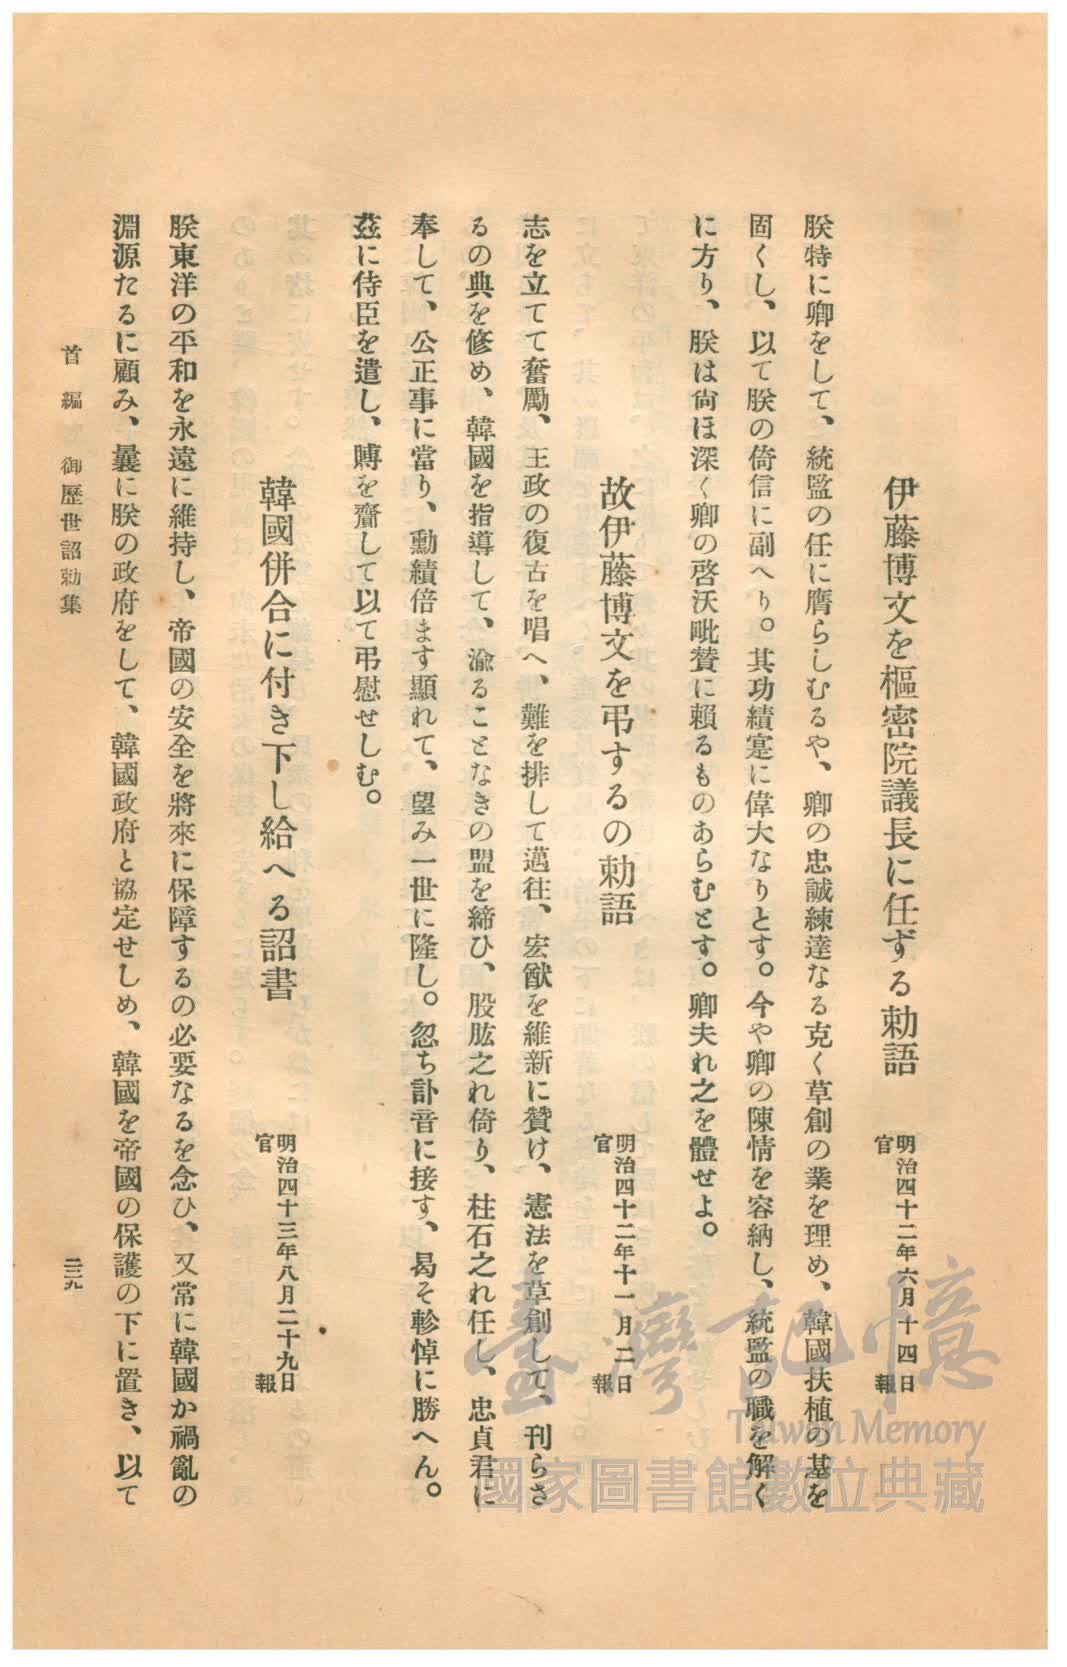 伊藤博文を樞密院議長に任ずる勅語
明治四十二年六月十四日
官報
朕特に卿をして、統監の任に膺らしむるや、卿の忠誠練達なる克く草創の業を理め、韓國扶植の基を
固くし、以て朕の倚信に副へり。其功績寔に偉大なりとす。今や卿の陳情を容納し、統監の職を解く
に方り、朕は尙ほ深く卿の啓沃毗贊に賴るものあらむとす。卿夫れ之を體せよ。
故伊藤博文を弔するの勅語
明治四十二年十一月二日
官報
志を立てて奮勵、王政の復古を唱へ、難を排して邁往、宏猷を維新に贊け、憲法を草創して、刊らさ
るの典を修め、韓國を指導して、渝ることなきの盟を締ひ、股肱之れ倚り、柱石之れ任し、忠貞君に
奉して、公正事に當り、勳績倍ます顯れて、望み一世に隆し。忽ち訃音に接す、曷そ軫悼に勝へん。
茲に侍臣を遣し、賻を齎して以て弔慰せしむ。
韓國併合に付き下し給へる詔書
明治四十三年八月二十九日
官報
朕東洋の平和を永遠に維持し、帝國の安全を將來に保障するの必要なるを念ひ、又常に韓國か禍亂の
淵源たるに顧み、曩に朕の政府をして、韓國政府と協定せしめ、韓國を帝國の保護の下に置き、以て
首編 御歷世詔勅集
二三九
臺灣記憶
Taiwan Memory
國家圖書館數位典藏